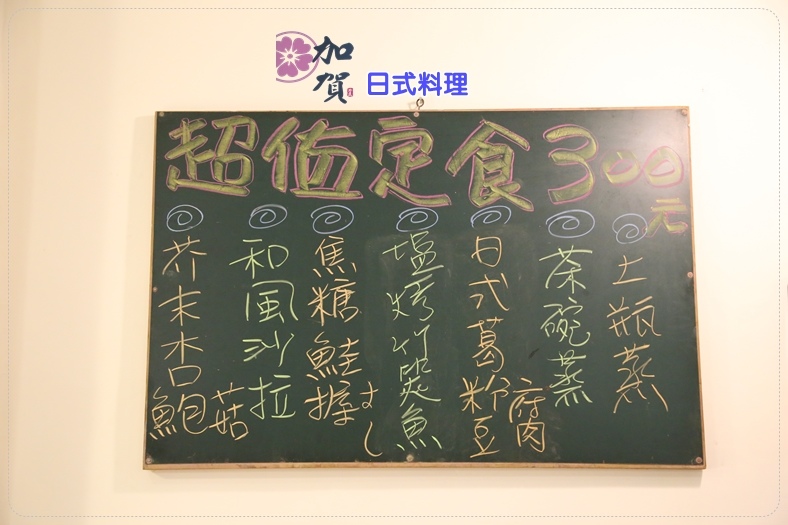 加賀 日式料理
超值定食300元
芥末杏鮑菇
和風沙拉
焦糖鮭握すし
塩烤竹筴魚
日式葛粉豆腐
茶碗蒸
土瓶蒸